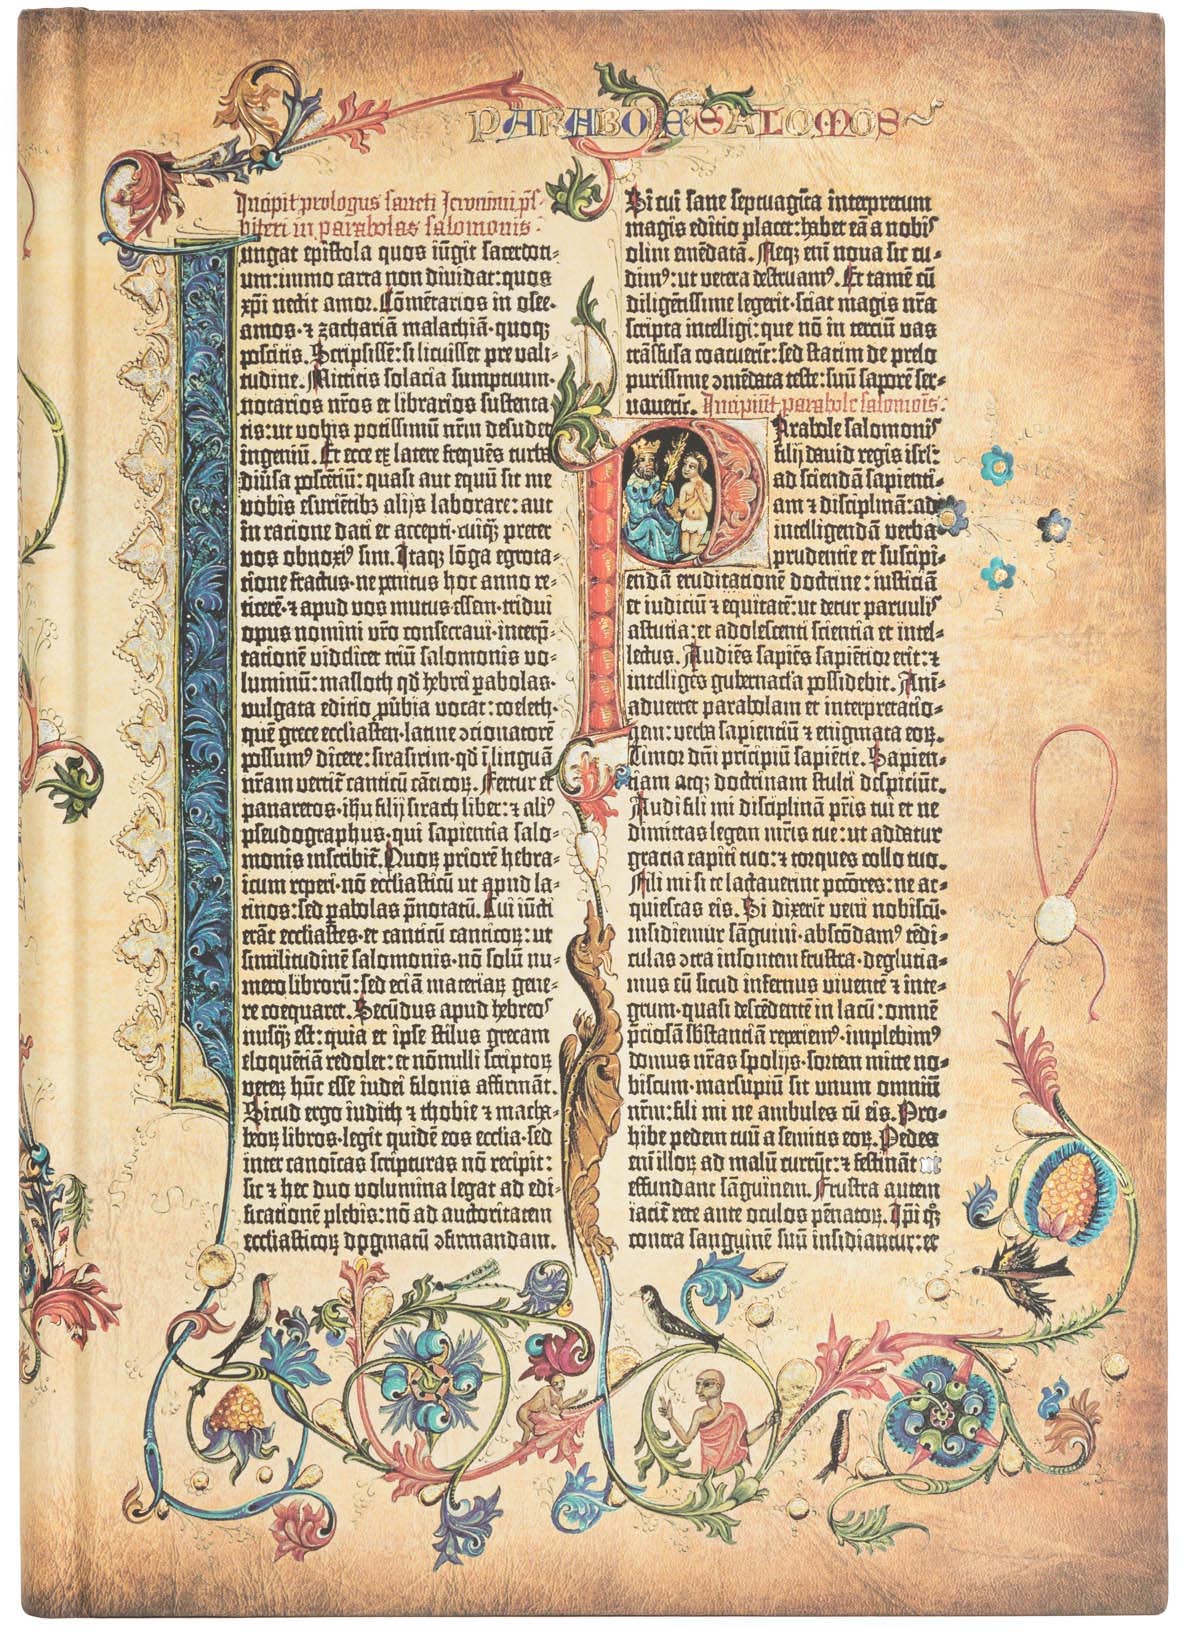 PARABOLE SALOMOS
Incipit prologus sancti Jeronimi ps=
biteri in parabolas salomonis.
Iungat epistola quos iūgit sacerdoti=
um: immo carta non dividat: quos
xpi nectit amor. Cōmētarios in osee.
amos. ⁊ zachariā malachiā. quoqȝ
poscitis. Scripsissē: si licuisset pre vali=
tudine. Mittitis solacia sumptuum.
notarios nr̄os et librarios sustenta=
tis: ut vobis potissimū nr̄m desudet
ingeniū. Et ecce ex latere frequēs turba
diūsa poscētiū: quasi aut equū sit me
vobis esuriētibȝ alijs laborare: aut
in ratione dati et accepti. cuiqȝ preter
vos obnoxiꝰ sim. Itaqȝ lōga egrota=
tione fractus. ne penitus hoc anno re=
ticerē. ⁊ apud vos mutus essem. tridui
opus nomini vr̄o consecravi. interp̄=
tationē videlicet triū salomonis vo=
luminū: masloth qd̄ hebrei ꝑabolas.
vulgata editio ꝓūbia vocat: coeleth.
quē grece ecclīasten. latine ꝯtionatorē
possumꝰ dicere: sirasirim. qd̄ ī linguā
nr̄am vertit̄ canticū cāticoꝝ. Fertur et
panaretos. ihu filij sirach liber: ⁊ aliꝰ
pseudographus. qui sapientia salo=
monis inscribit̄. Quoꝝ priorē hebra=
icum reperi. nō ecclīasticū ut apud la=
tinos: sed ꝑabolas p̄notatū. Cui iūcti
erāt ecclīastes. et canticū canticoꝝ: ut
similitudinē salomonis. nō solū nu=
mero librorū: sed eciā materiaꝝ gene=
re coequaret. Secūdus apud hebreos
nusqȝ est: quia et ipse stilus grecam
eloquētiā redolet: et nōnulli scriptoꝝ
veteꝝ hūc esse iudei filonis affirmāt.
Sicud ergo iudith ⁊ thobie ⁊ macha=
beoꝝ libros. legit quidē eos ecclīa. sed
inter canoīcas scripturas nō recipit:
sic ⁊ hec duo volumina legat ad edi=
ficationē plebis: nō ad auctoritatem
ecclīasticoꝝ dogmatū ꝯfirmandam.
Si cui sane septuagīta interpretum
magis editio placet: habet eā a nobis
olim emēdatā. Neqȝ em̄ nova sic cu=
dimꝰ: ut vetera destruamꝰ. Et tamē cū
diligētissime legerit. sciat magis nr̄a
scripta intelligi: que nō in terciū vas
trāsfusa coacuerīt: sed statim de prelo
purissime ꝯmēdata teste: suū saporē ser=
vaverīt. Incipiūt parabole salomōis.
Parabole salomonis
filij david regis isrl̄:
ad sciendā sapienti=
am ⁊ disciplinā: ad
intelligendā verba
prudentie et suscipi=
endā eruditationē doctrine: iusticiā
et iudiciū ⁊ equitatē: ut detur parvulis
astutia: et adolescenti scientia et intel=
lectus. Audiēs sapiēs sapiētior erit: ⁊
intelligēs gubernacła possidebit. Ani=
advertet parabolam et interpretatio=
nem: verba sapientiū ⁊ enigmata eoꝝ.
Timor dn̄i prīcipiū sapiētie. Sapien=
tiam atqȝ doctrinam stulti despiciūt.
Audi fili mi disciplinā pr̄is tui et ne
dimittas legem mr̄is tue: ut addatur
gracia capiti tuo: ⁊ torques collo tuo.
Fili mi si te lactaverint pctōres: ne ac=
quiescas eis. Si dixerīt veni nobiscū.
insidiemur sāguini. abscōdamꝰ tēdi=
culas ꝯtra insontem frustra. deglutia=
mus eū sicud infernus viventē ⁊ inte=
grum. quasi descēdentē in lacū: omnē
p̄ciosā sb̄stanciā reperiemꝰ. implebimꝰ
domus nr̄as spolijs. sortem mitte no=
biscum. marsupiū sit unum omniū
nr̄m: fili mi ne ambules cū eis. Pro=
hibe pedem tuū a semitis eoꝝ. Pedes
em̄ illoꝝ ad malū currūt: ⁊ festināt ut
effundant sāguinem. Frustra autem
iacit̄ rete ante oculos pēnatoꝝ. Ipi qȝ
contra sanguinē suū insidiantur: et